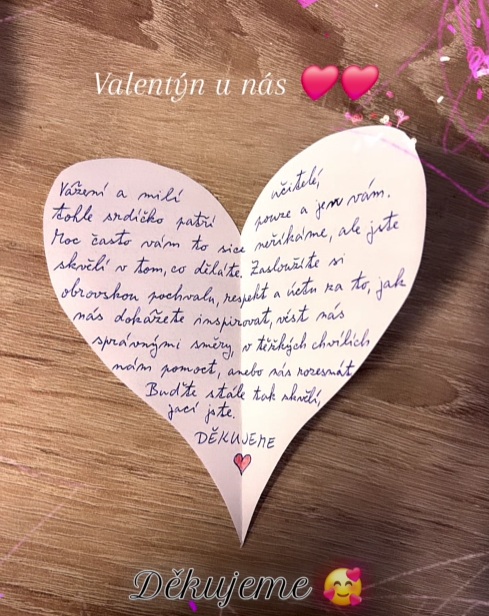 Valentýn u nás 💕💕
Vážení a milí učitelé,
tohle srdíčko patří pouze a jen vám.
Moc často vám to sice neříkáme, ale jste
skvělí v tom, co děláte. Zasloužíte si
obrovskou pochvalu, respekt a úctu za to, jak
nás dokážete inspirovat, vést nás
správnými směry, v těžkých chvílích
nám pomoct, anebo nás rozesmát.
Buďte stále tak skvělí,
jací jste.
DĚKUJEME
Děkujeme 🥰